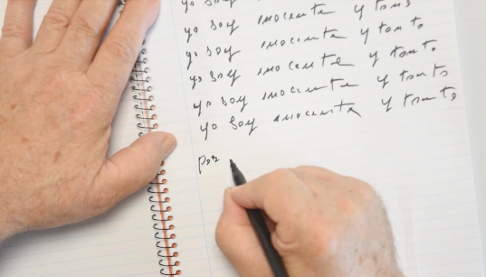 yo soy inocente y tonto
yo soy inocente y tonto
yo soy inocente y tonto
yo soy inocente y tonto
yo soy inocente y tonto
yo soy inocente y tonto
por